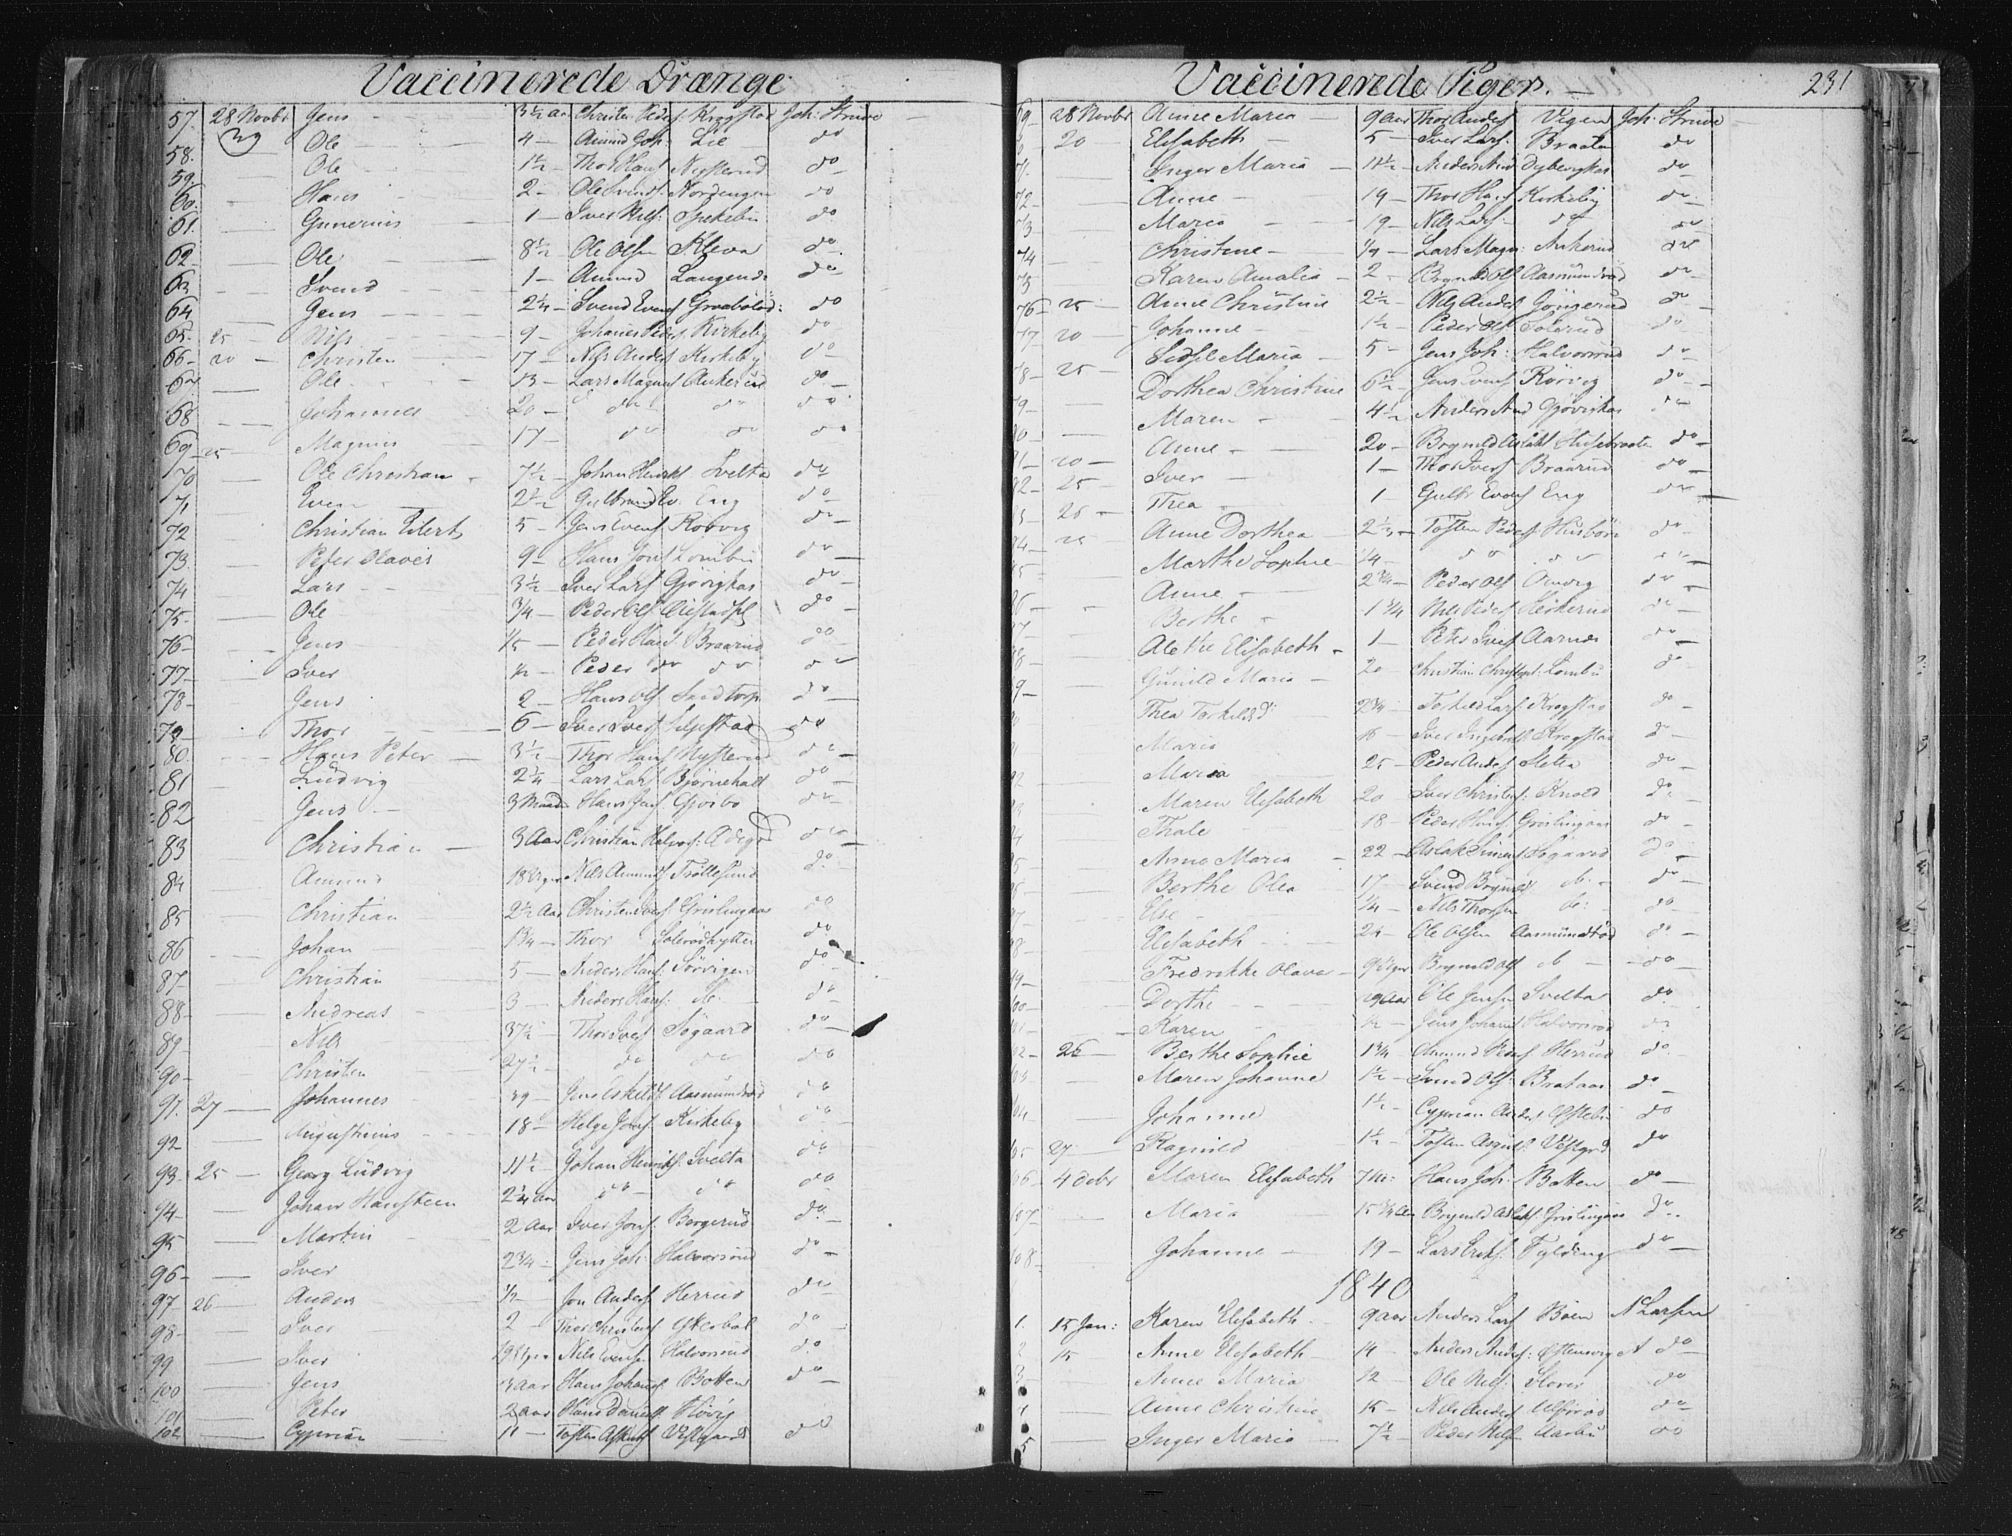 Vaccinerede Drænge
57. 28 Novbr Jens 3½ Aar Christen Peders: Krogstad Joh: Struve
58. Ole 4 Amund Joh: Lie do
59. Ole 1½ Thor Hans Nysterud do
60. Hans 2 Ole Svends: Nordengen do
61. Gunerius 1 Iver do
62 Ole 8½ Ole Olsen Kleva do
63 Svend 1 Amund do
64 Jens 2¼ Svend Evens do
65. 25 Nils 9 Johannes Peders Kirkeby do
66 20 Christen 17 Nils Anders Kirkeby do
67 Ole 13 Lars Magnus Ankerud do
68 Johannes 20 do do do
69 25 Magnus 17 do do do
70 Ole Christian 7½ Johan Henriks Svelta do
71 Even 2½ Gulbrand Ev. Eng do
72 Christian Eilert 5 Jens Evens Rörvig do
73. Peter Olaves 9 Hans Jens Lombu do
74 Lars 3½ Iver Lars Gjövigkas do
75. Ole ¾ Peder Ols do
76 Jens Peder Hans Braarud do
77 Iver ½ Peder do do do
78 Jens 2 Hans Ols Sandtorp do
79 Thor 6 Iver Ivers do
80. Hans Peter 3½ Thor Hans Nysterud do
81 Ludvig 2¼ Lars Lars Bjørnehall do
82 Jens 3 Maad Hans Jens do
83 Christian 3 Aar Christian Halvors: do
84 Amund 18 Uger Nils Amunds Tröllesund do
85 Christian 2½ Aar Christen Ivers Grislingaas do
86 Johan 1¾ Thor Solerödhytten do
87 Christian 5 Anders Hans: Sörvigen do
88 Andreas 3 Anders Hans: do do
89 Nils 37½ Thor Ivers Sögaard do
90 Christen 27½ do do do
91. 27 Johannes 39 Jens Eskilds Aasmundrød do
92 Augustinus 18 Helge Jons Kirkeby do
93 25 Georg Lüdvig 11½ Johan Henriks Svelta do
94 Johan Hansteen 2¼ Aar do do do
95 Martin 2 Aar Iver Jons: Bergerud do
96 Iver 2¾ Jens Joh: Halvorsrud do
97 26 Anders ½ Jon Anders Herrud do
98 Iver 2 Thor Christens do
99 Iver 19 Uger Nils Evens Halvorsrud do
100 Jens 3 Aar Hans Johans Botten do
101 Peter 2 Aar Hans Daniels Hövig do
102 Cyprian 11 Tosten Vestgaard do
Vaccinerede Piger. 231
69 28 Novbr Anne Maria 9 Aar Thor Anders Vigen Joh. Struve
20 Elisabeth 5 Iver Lars: Braaten do
71. Inger Maria 11½ Anders And Dybevigkas do
72 Anne 19 Thor Hans Kirkeby do
73 Maria 19 Nils Lars do do
74 Christine Lars Magn: Ankerud do
75 Karen Amalia 2 Brynild Ols Aasmundrud do
76 25 Anne Christine 2½ Nils Anders Göngerud do
77 20 Johanne 1½ Peder Ols Solerud do
78 25 Sidsel Maria 5 Jens Joh: Halvorsrud do
79 Dorthea Christine 6½ Jens Evens Rörvig do
80 Maren 4½ Anders And Gjövigkas do
81 20 Anne 20 Brynild Aslaks Husebraaten do
82 25 Iver 1 Thor Ivers Braarud do
83 26 Thea 1 Gulbr Evens Eng do
84 25 Anne Dorthea 2½ Tosten Peders Husbön do
85 Marthe Sophie ¼ do do do
86 Anne 2¾ Peder Ols do
87 Berthe 1¾ Nils Peders do
88 Alethe Elisabeth 1 Peter Ivers Aarnes do
89 Gunild Maria 20 Christian Lombu do
Thea Torkilds d: 2¾ Torkild Lars Krogstad do
Maria 16 Iver Krogstad do
92 Maria 25 Peder Anders do
93 Maren Elisabeth 20 Iver Christens: do
94 Thale 18 Peder Hans Grislingaas do
95 Anne Maria 22 Aslak Simens Sögaard do
96 Berthe Olea 17 Svend Brynilds do do
97 Else ¼ Nils Thorsen do: do
98 Elisabeth 24 Ole Olsen Aasmundrød do
99 Fredrikke Olava 9 Uger Brynild Ols do do
100 Dorthe 29 Aar Ole Jensen Svelta do
101 Karen ½ Jens Johans Halvorsrud do
102 26 Berthe Sophie 1¾ Amund Peders Herrud do
103 Maren Johanne 1½ Svend Ols: Brataas do
104 Johanne 1½ Cyprian Anders do
105 27 Ragnild 1½ Tosten Vestgrd do
106 4 Debr Maren Elisabeth 7 M: Hans Joh: Botten do
107 Maria 15¾ Aar Brynild Aslaks Grislingaas do
108 Johanne 19 Lars Eriks: Fylding do
1840
1. 15 Jan: Karen Elisabeth 9 Aar Anders Lars Böen N Larsen
2 15 Anne Elisabeth 14 Anders Anders: do
3 Anne Maria 12 Ole Nils: do
4 Anne Christine 15 Nils Anders Ulfsrud do
5 Inger Maria 7½ Peder Nils Aarbu do